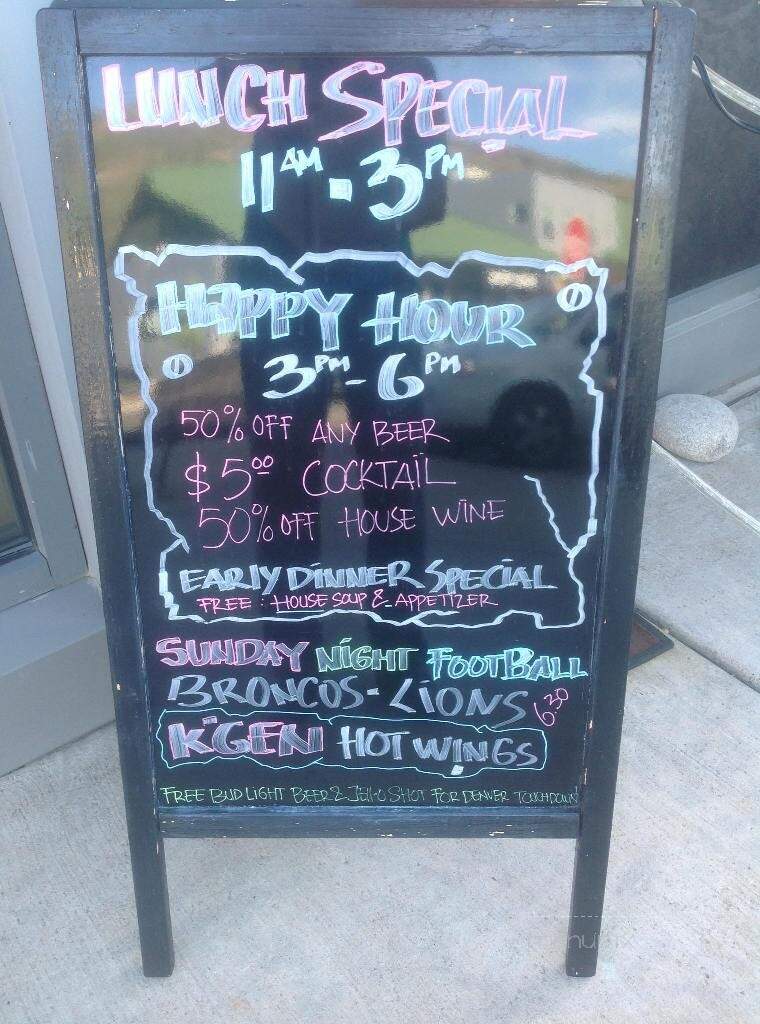 LUNCH SPECIAL
11 AM - 3 PM
HAPPY HOUR
3 PM - 6 PM
50% OFF ANY BEER
$5.00 COCKTAIL
50% OFF HOUSE WINE
EARLY DINNER SPECIAL
FREE : HOUSE SOUP & APPETIZER
SUNDAY NIGHT FOOTBALL
BRONCOS - LIONS 6:30
K'GEN HOT WINGS
FREE BUD LIGHT BEER & JELL-O SHOT FOR DENVER TOUCHDOWN